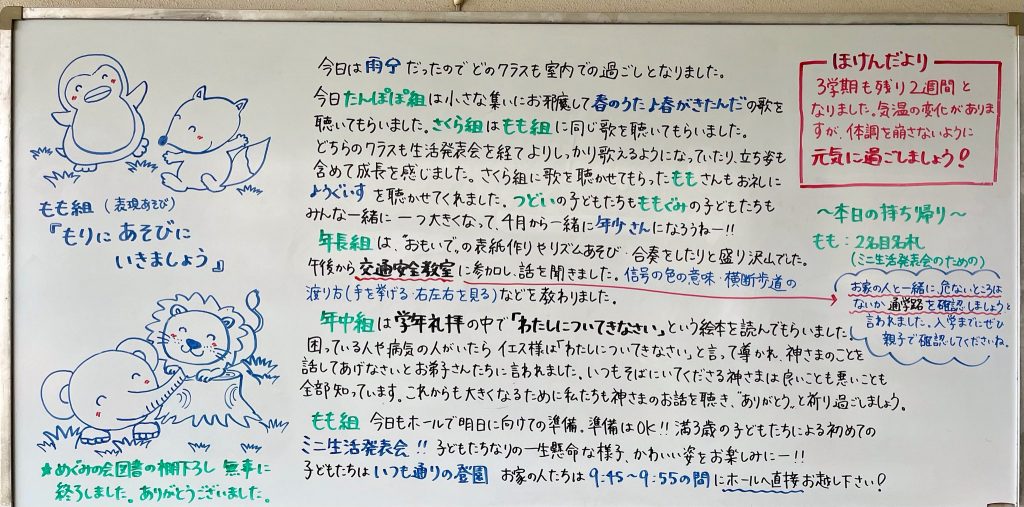 もも組 (表現あそび)
『もりに あそびに
いきましょう』
★めぐみの会図書の棚下ろし 無事に
終了しました。ありがとうございました。
今日は雨☂だったので どのクラスも 室内での過ごしとなりました。
今日たんぽぽ組は小さな集いにお邪魔して春のうた♪春がきたんだの歌を
聴いてもらいました。さくら組はもも組に同じ歌を聴いてもらいました。
どちらのクラスも生活発表会を経てよりしっかり歌えるようになっていたり、立ち姿も
含めて成長を感じました。さくら組に歌を聴かせてもらったももさんもお礼に
ようぐいすを聴かせてくれました。つどいの子どもたちももぐみの子どもたちも
みんな一緒に 一つ大きくなって、4月から一緒に年少さんになろうねー!!
年長組は、"おもいで"の表紙作りやリズムあそび・合奏をしたりと盛り沢山でした。
午後から交通安全教室に参加し、話を聞きました。信号の色の意味・横断歩道の
渡り方(手を挙げる・右左右を見る)などを教わりました。
年中組は学年礼拝の中で「わたしについてきなさい」という絵本を読んでもらいました。
困っている人や病気の人がいたら イエス様は「わたしについてきなさい」と言って導かれ、神さまのことを
話してあげなさいとお弟子さんたちに言われました。いつもそばにいてくださる神さまは良いことも悪いことも
全部知っています。これからも大きくなるために私たちも神さまのお話を聴き、"ありがとう"と祈り過ごしましょう。
もも組 今日もホールで明日に向けての準備。準備はOK!! 満3歳の子どもたちによる初めての
ミニ生活発表会!! 子どもたちなりの一生懸命な様子、かわいい姿をお楽しみにー!!
子どもたちはいつも通りの登園 お家の人たちは9:45〜9:55の間にホールへ直接お越し下さい!
ほけんだより
3学期も残り2週間と
なりました。気温の変化がありま
すが、体調を崩さないように
元気に過ごしましょう!
〜本日の持ち帰り〜
もも:2名目名札
(ミニ生活発表会のための)
お家の人と一緒に、危ないところは
ないか通学路を確認しましょうと
言われました。入学までにぜひ
親子で確認してくださいね。